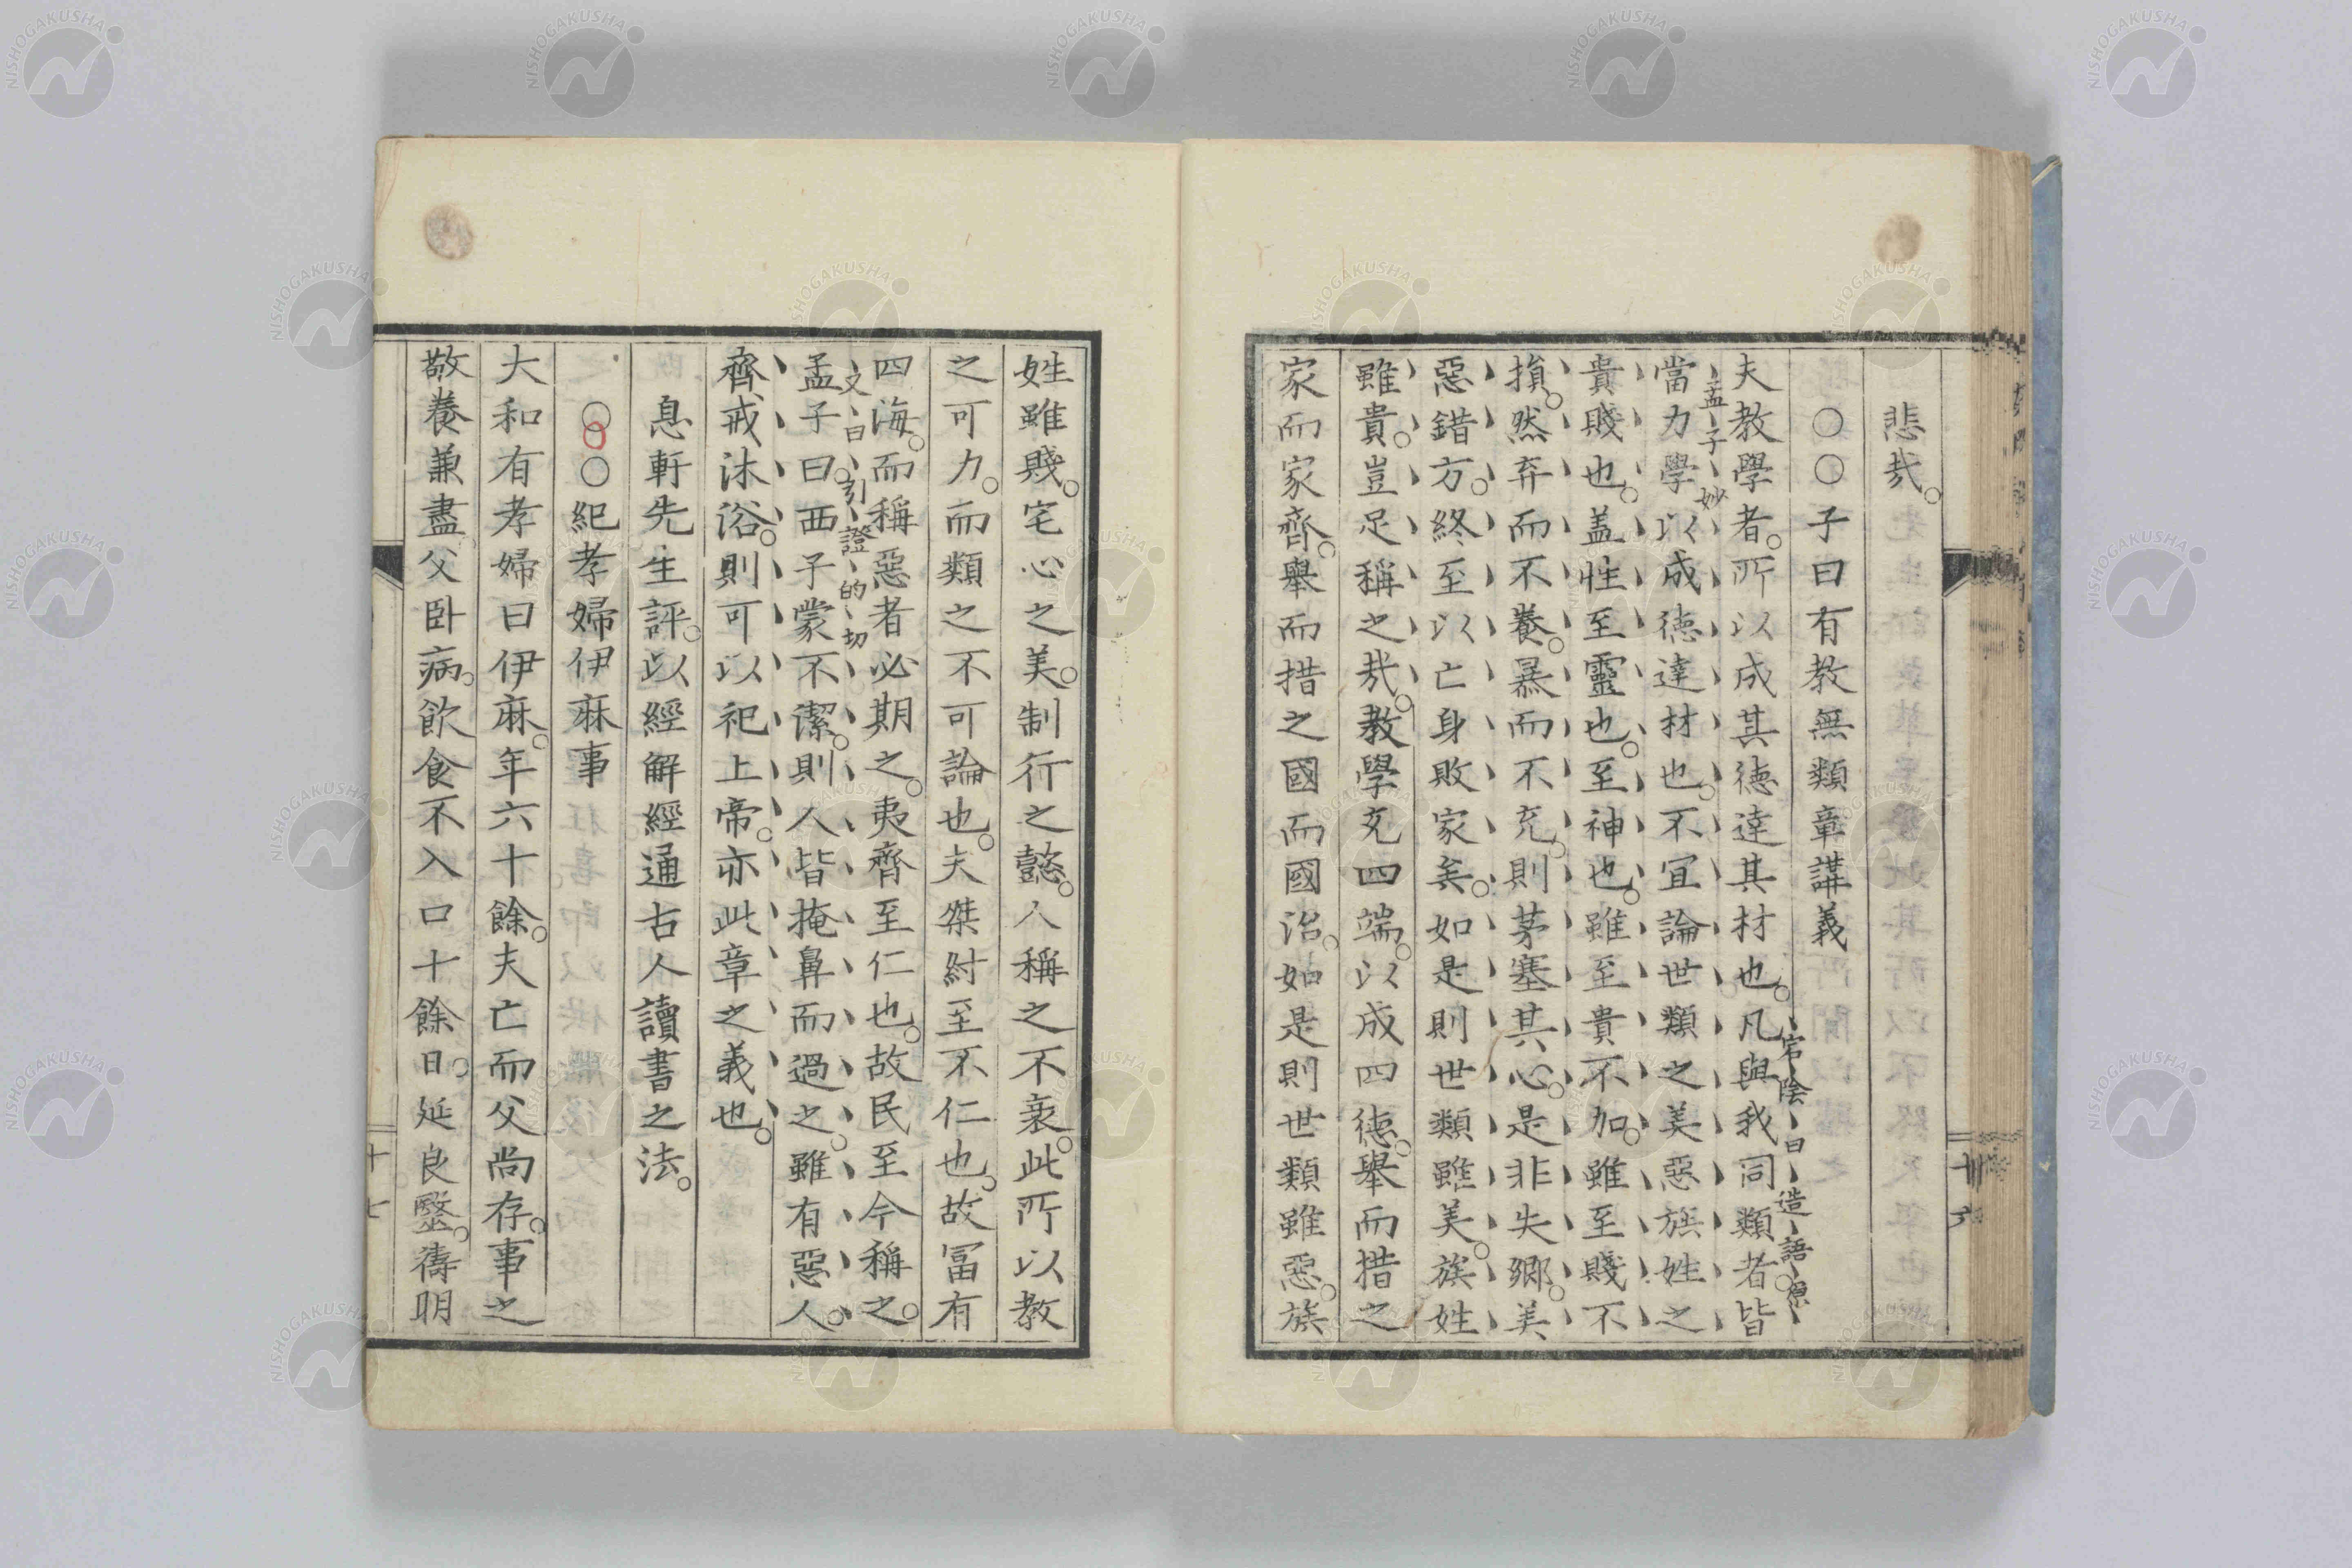 悲哉。
○○子曰有教無類章講義
夫教學者。所以成其德達其材也。凡與我同類者。皆
宕陰曰造語
當力學以成德達材也。不宜論世類之美惡族姓之
孟子妙
貴賤也。蓋性至靈也。至神也。雖至貴不加。雖至賤不
損。然弃而不養。暴而不充。則茅塞其心。是非失鄉。美
惡錯方。終至以亡身敗家矣。如是則世類雖美。族姓
雖貴。豈足稱之哉。教學充四端。以成四德。舉而措之
家而家齊。舉而措之國而國治。如是則世類雖惡。族
姓雖賤。宅心之美。制行之懿。人稱之不衰。此所以教
之可力。而類之不可論也。夫桀紂至不仁也。故冨有
四海。而稱惡者必期之。夷齊至仁也。故民至今稱之。
文曰引證的切
孟子曰。西子蒙不潔。則人皆掩鼻而過之。雖有惡人。
齊戒沐浴。則可以祀上帝。亦此章之義也。
息軒先生評。以經解經通古人讀書之法。
○○紀孝婦伊麻事
大和有孝婦曰伊麻。年六十餘。夫亡而父尚存。事之
敬養兼盡父卧病。飲食不入口十餘日。延良毉。禱明
十六
十七
NISHOGAKUSHA